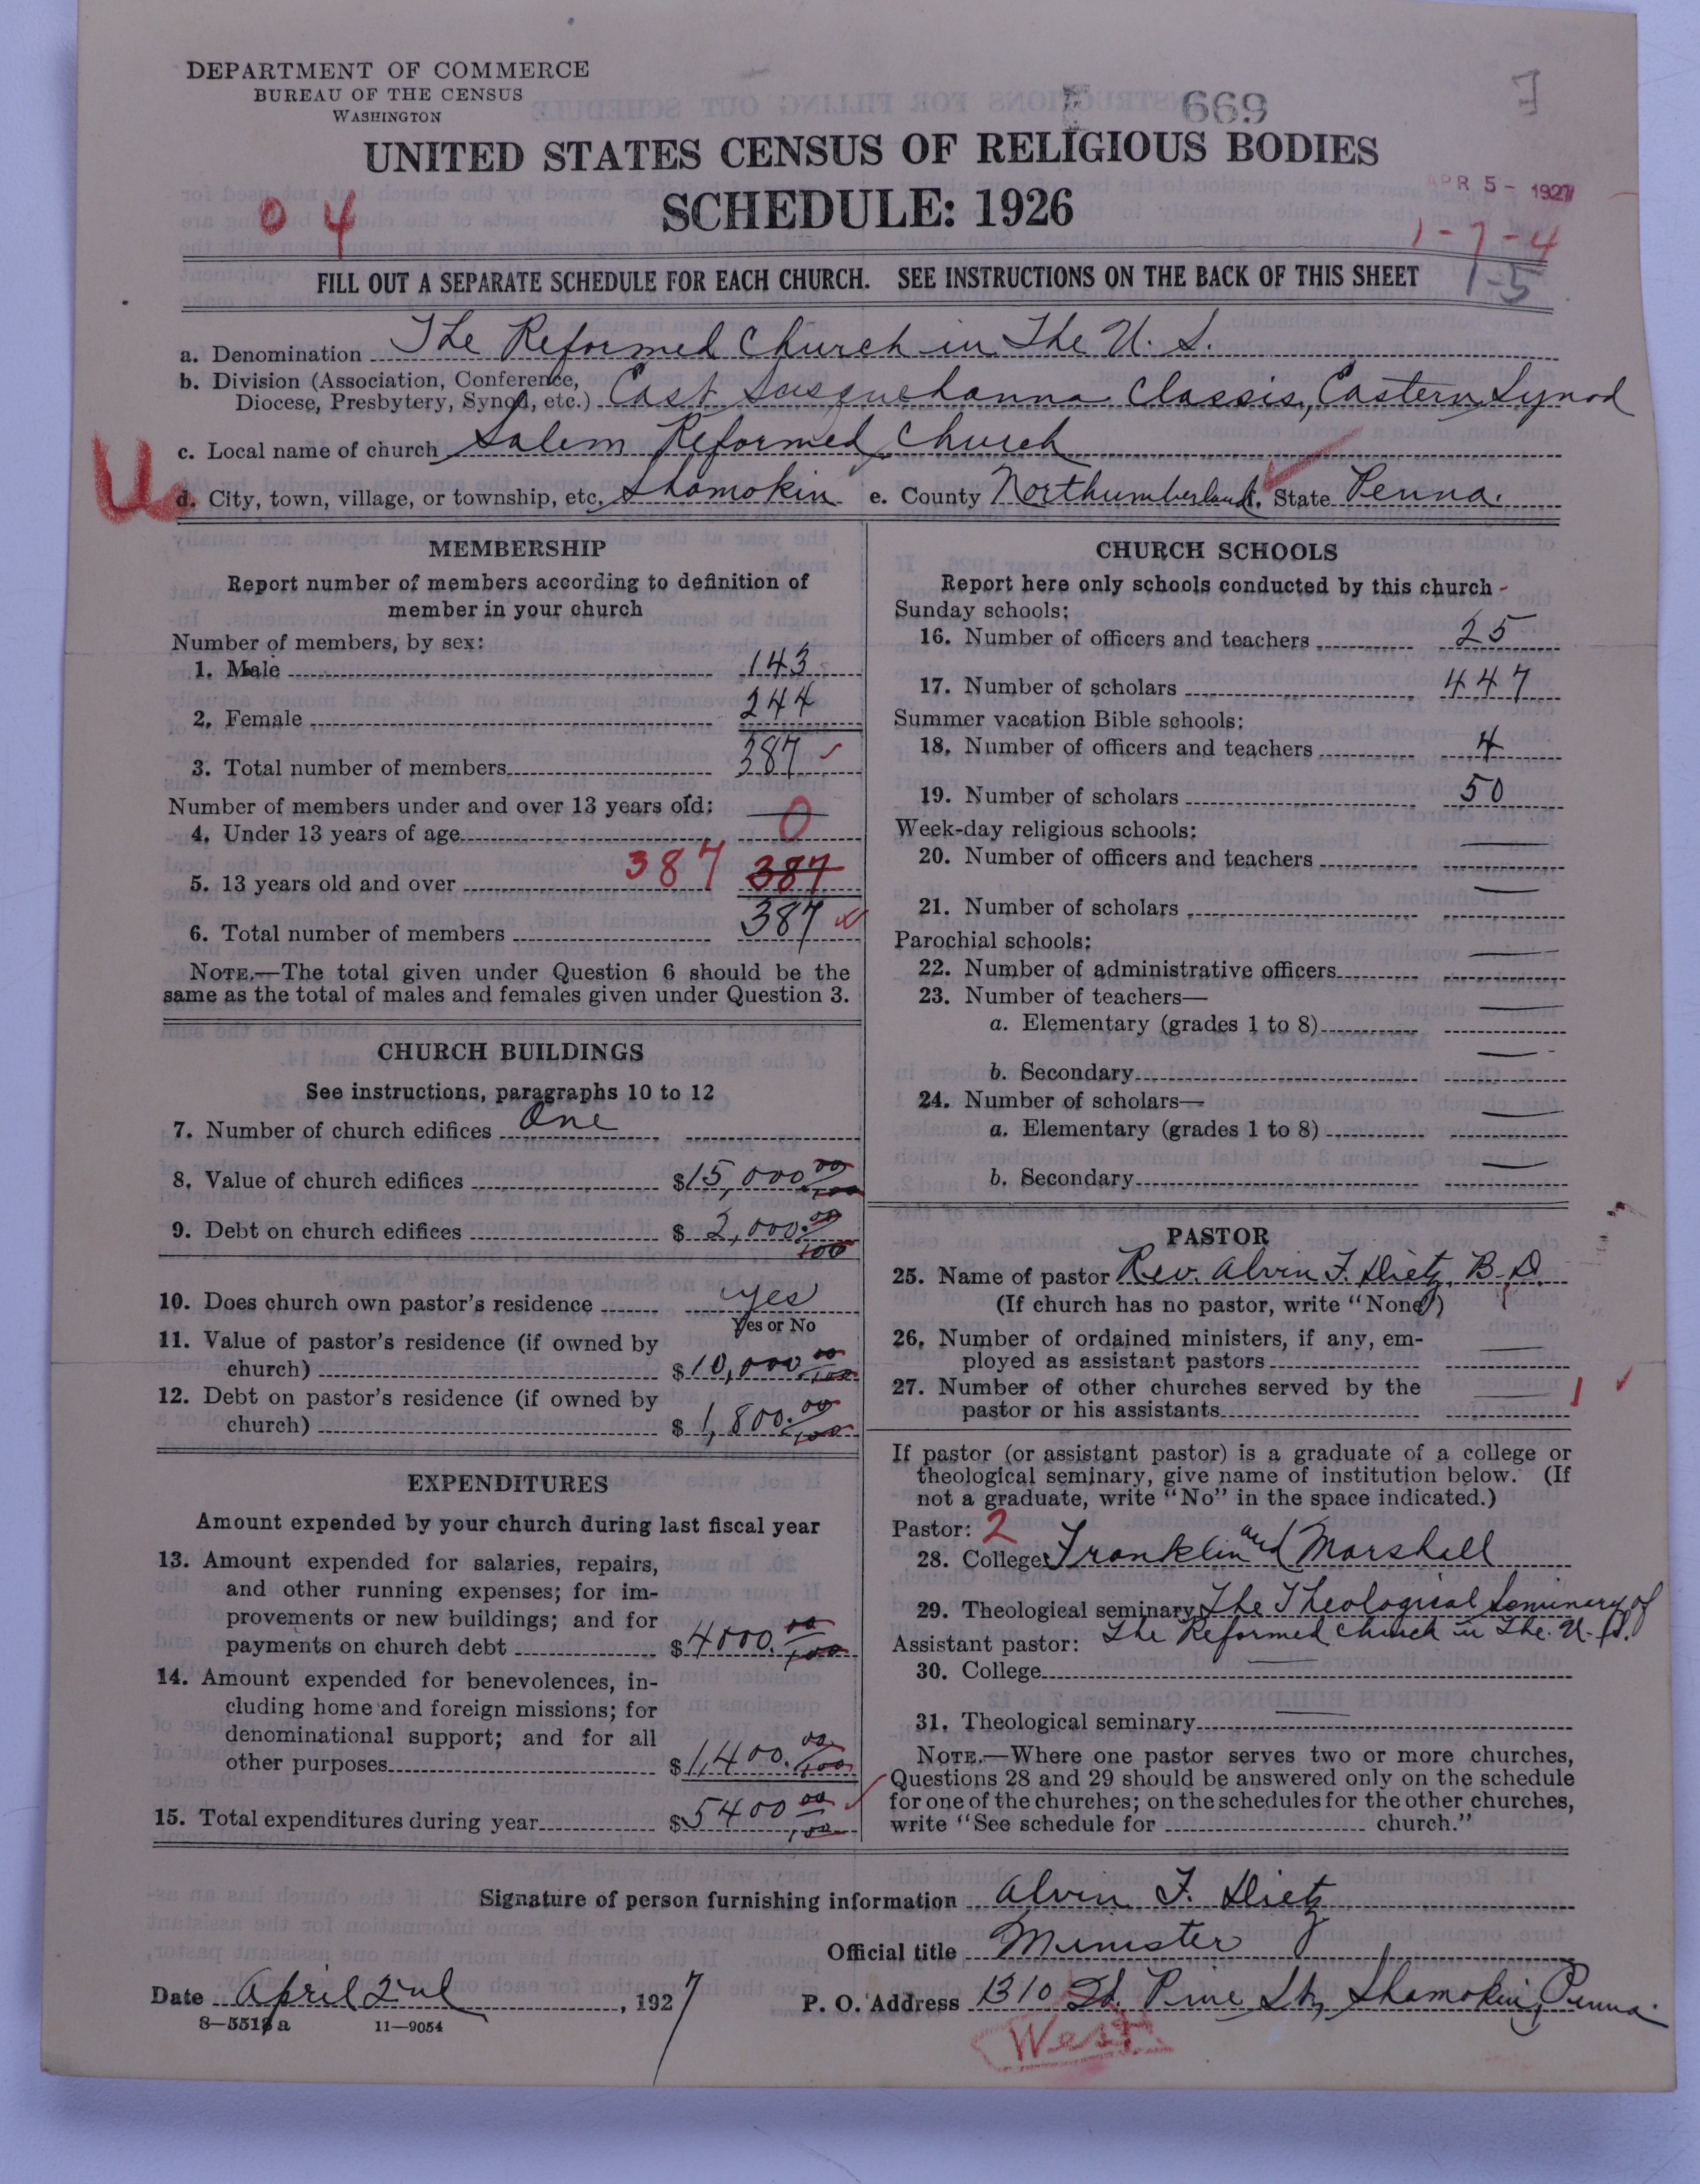 DEPARTMENT OF COMMERCE
BUREAU OF THE CENSUS
WASHINGTON
669
UNITED STATES CENSUS OF RELIGIOUS BODIES
SCHEDULE: 1926
APR 5 - 1927
0 4
1-7-4
FILL OUT A SEPARATE SCHEDULE FOR EACH CHURCH. SEE INSTRUCTIONS ON THE BACK OF THIS SHEET
1-5
a. Denomination The Reformed Church in The U. S.
b. Division (Association, Conference, Diocese, Presbytery, Synod, etc.) East Susquehanna Classis, Eastern Synod
c. Local name of church Salem Reformed Church
U
d. City, town, village, or township, etc. Shamokin e. County Northumberland, State Penna.
MEMBERSHIP
Report number of members according to definition of
member in your church
Number of members, by sex:
1. Male 143
2. Female 244
3. Total number of members 387
Number of members under and over 13 years old:
4. Under 13 years of age — 0
5. 13 years old and over 387 387
6. Total number of members 387
NOTE.—The total given under Question 6 should be the
same as the total of males and females given under Question 3.
CHURCH BUILDINGS
See instructions, paragraphs 10 to 12
7. Number of church edifices One
8. Value of church edifices $15,000 00/100
9. Debt on church edifices $2,000.00/100
10. Does church own pastor's residence yes
Yes or No
11. Value of pastor's residence (if owned by
church) $10,000 00/100
12. Debt on pastor's residence (if owned by
church) $1,800.00/100
EXPENDITURES
Amount expended by your church during last fiscal year
13. Amount expended for salaries, repairs,
and other running expenses; for im-
provements or new buildings; and for
payments on church debt $4000.00/100
14. Amount expended for benevolences, in-
cluding home and foreign missions; for
denominational support; and for all
other purposes $1,400.00/100
15. Total expenditures during year $5400 00/100
CHURCH SCHOOLS
Report here only schools conducted by this church
Sunday schools:
16. Number of officers and teachers 25
17. Number of scholars 447
Summer vacation Bible schools:
18. Number of officers and teachers 4
19. Number of scholars 50
Week-day religious schools:
20. Number of officers and teachers —
21. Number of scholars —
Parochial schools:
22. Number of administrative officers —
23. Number of teachers—
a. Elementary (grades 1 to 8) —
b. Secondary —
24. Number of scholars—
a. Elementary (grades 1 to 8) —
b. Secondary —
PASTOR
25. Name of pastor Rev. Alvin F. Dietz, B. D.
(If church has no pastor, write "None")
26. Number of ordained ministers, if any, em-
ployed as assistant pastors —
27. Number of other churches served by the
pastor or his assistants — 1
If pastor (or assistant pastor) is a graduate of a college or
theological seminary, give name of institution below. (If
not a graduate, write "No" in the space indicated.)
Pastor: 2
28. College Franklin and Marshall
29. Theological seminary The Theological Seminary of
Assistant pastor: The Reformed Church in The U. S.
30. College —
31. Theological seminary —
NOTE.—Where one pastor serves two or more churches,
Questions 28 and 29 should be answered only on the schedule
for one of the churches; on the schedules for the other churches,
write "See schedule for church."
Signature of person furnishing information Alvin F. Dietz
Official title Minister
Date April 2nd, 1927
P. O. Address 1310 W. Pine St., Shamokin, Penna.
8—5513 a 11—9054
West